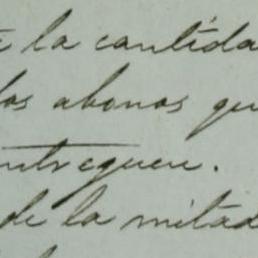 la cantida
los abonos qu
entreguen.
de la mitad